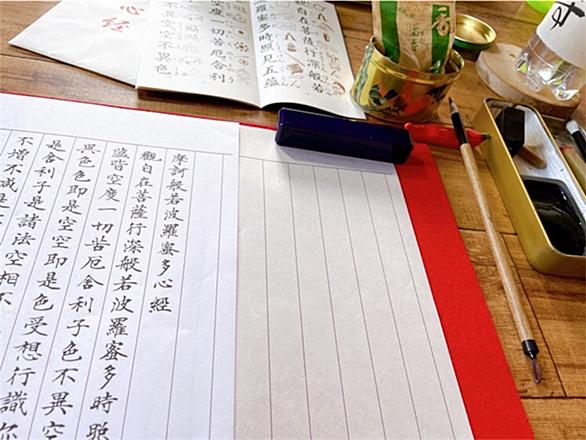 心経
在菩薩行深般若
羅蜜多時照見五蘊
一切苦厄舍利
不異色
香
摩訶般若波羅蜜多心經
觀自在菩薩行深般若波羅蜜多時照
蘊皆空度一切苦厄舍利子色不異空
異色色即是空空即是色受想行識亦
是舍利子是諸法空相不
不增不減是